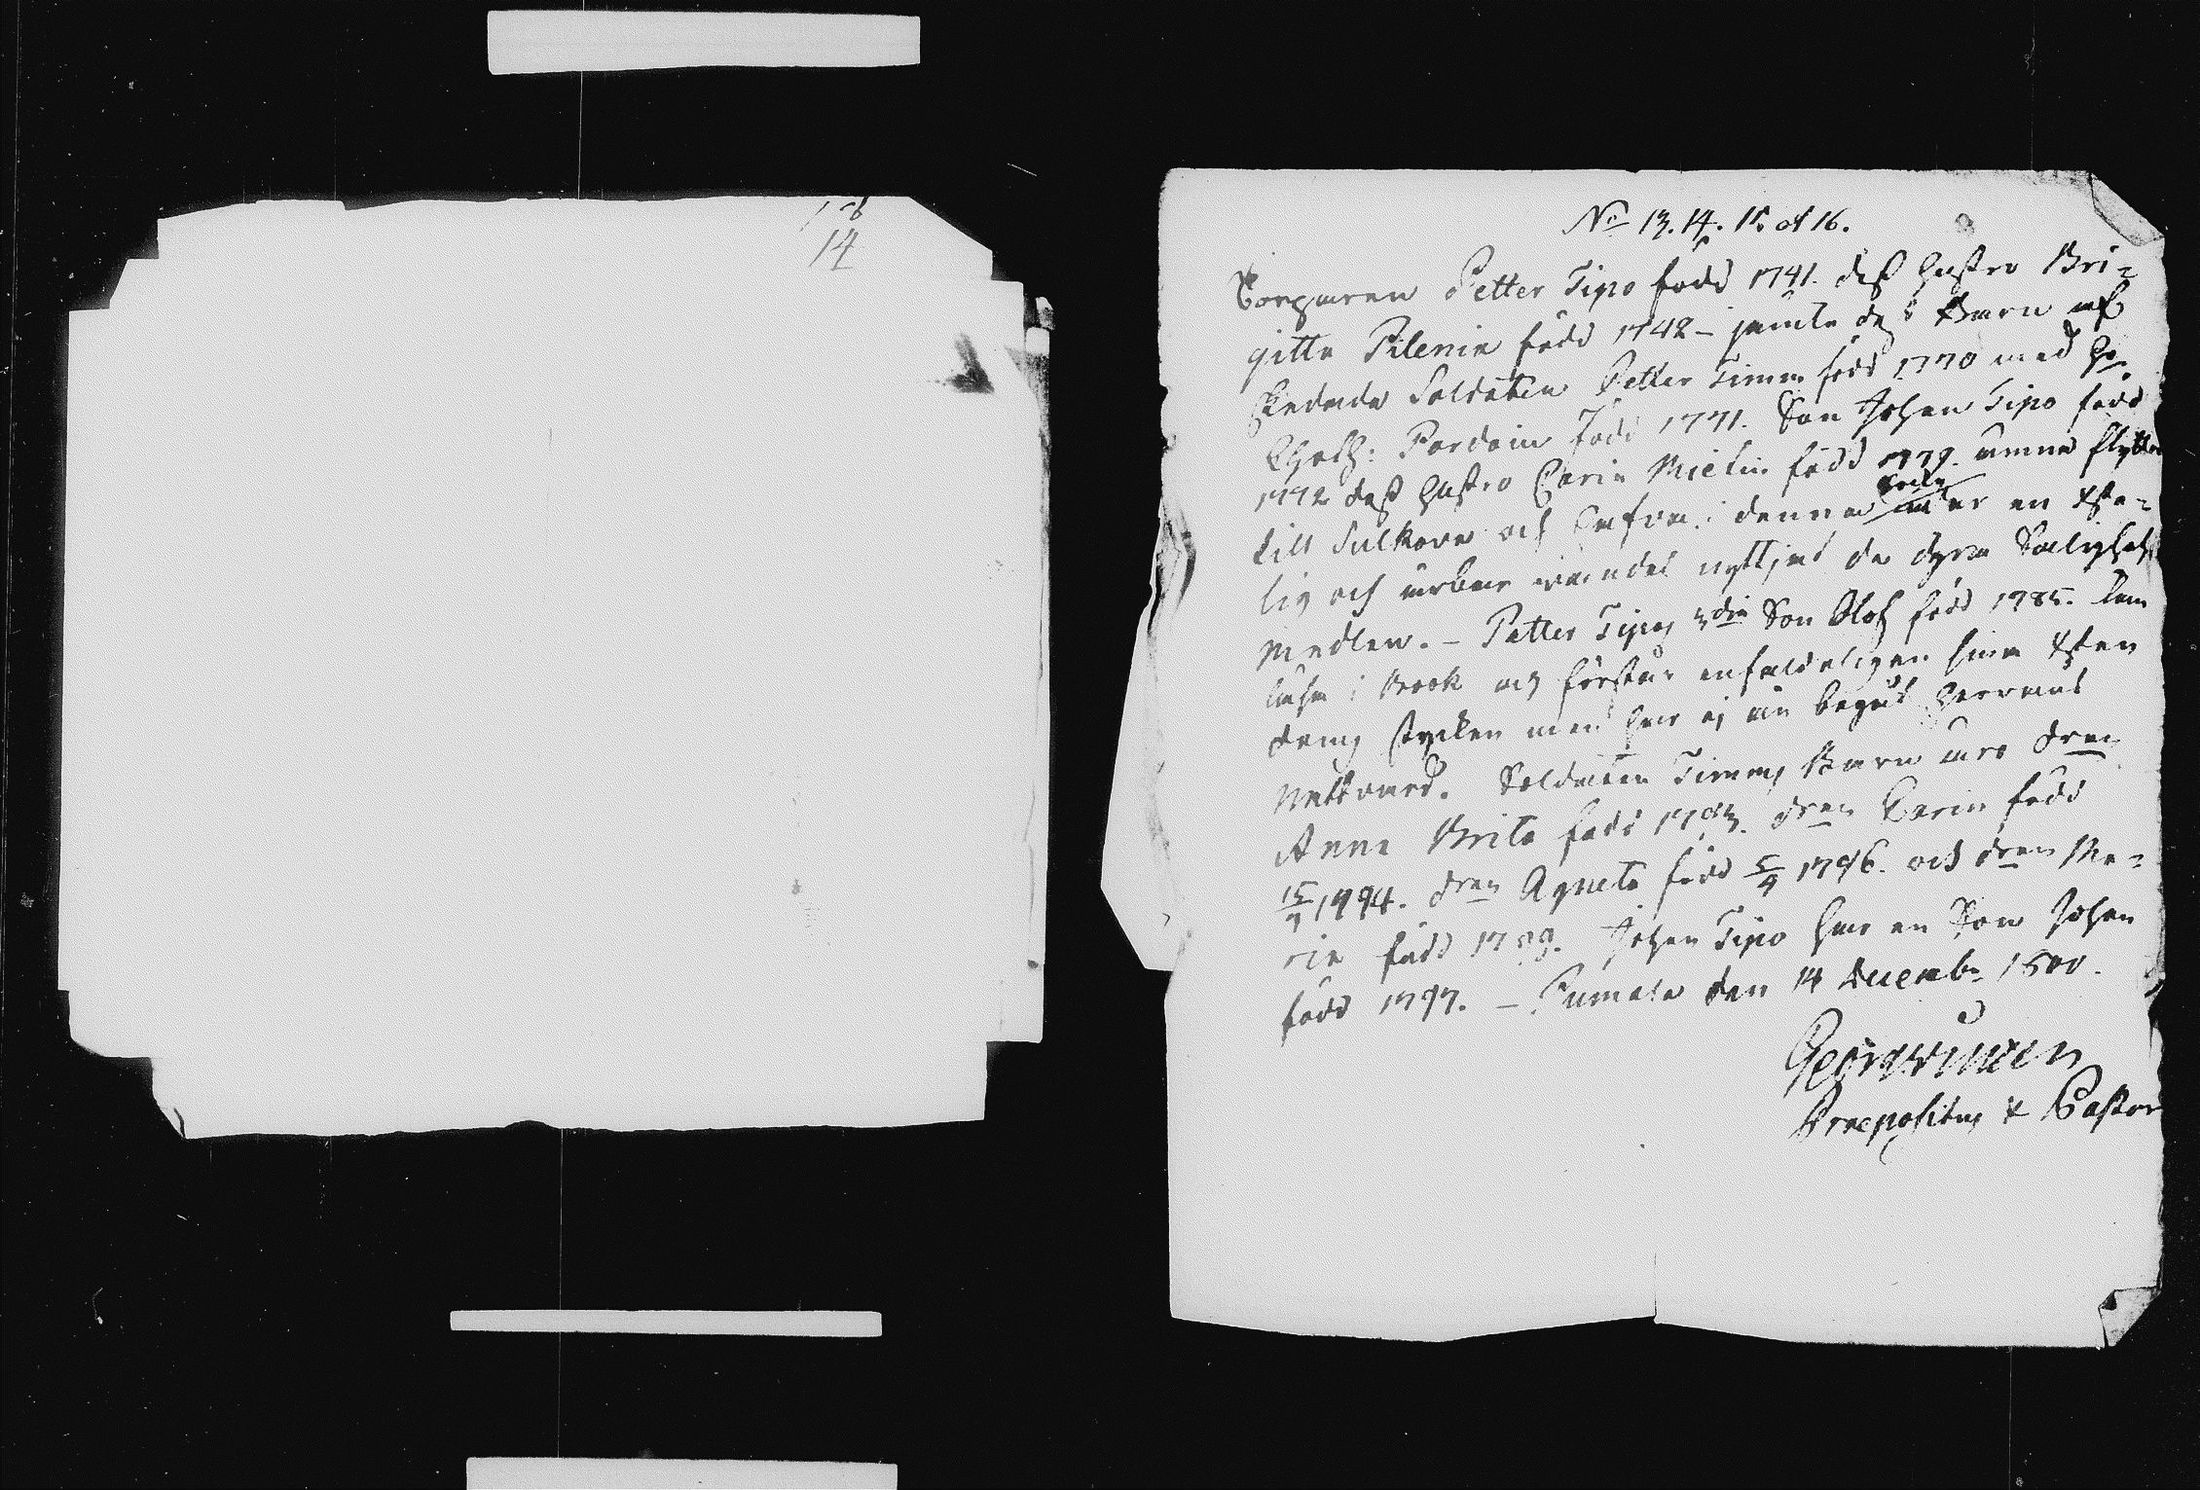 14
No 13. 14. 15 et 16.
Torparen Petter Tipo född 1741. dess hustro Bri-
gitta Pilenia född 1748 – jämte dess Barn af-
skedade Soldaten Petter Timm född 1770 med hu.
Pardain född 1771. Son Johan Tipo född
1772 dess hustro Carin Mielin född 1779. ämna flytta
till Sulkava och hafva i denna under en Chr-
lig och ärbar wandel nyttjat de dyra Salighets
medlen. – Petter Tipos 3die Son Olof född 1785. kan
läsa i Book och förstår enfaldeligen sina Chrsten
doms stycken men har ej än begått Herrans
Nattvard. Soldaten Timms Barn äro dren
Anna Brita född 1793. dren Carin född
15/9 1794. dren Agneta född 5/9 1796. och dren Ma-
ria född 1799. Johan Tipo har en Son Johan
född 1797. – Pumala den 14 Decemb. 1800.
Praepositus & Pastor